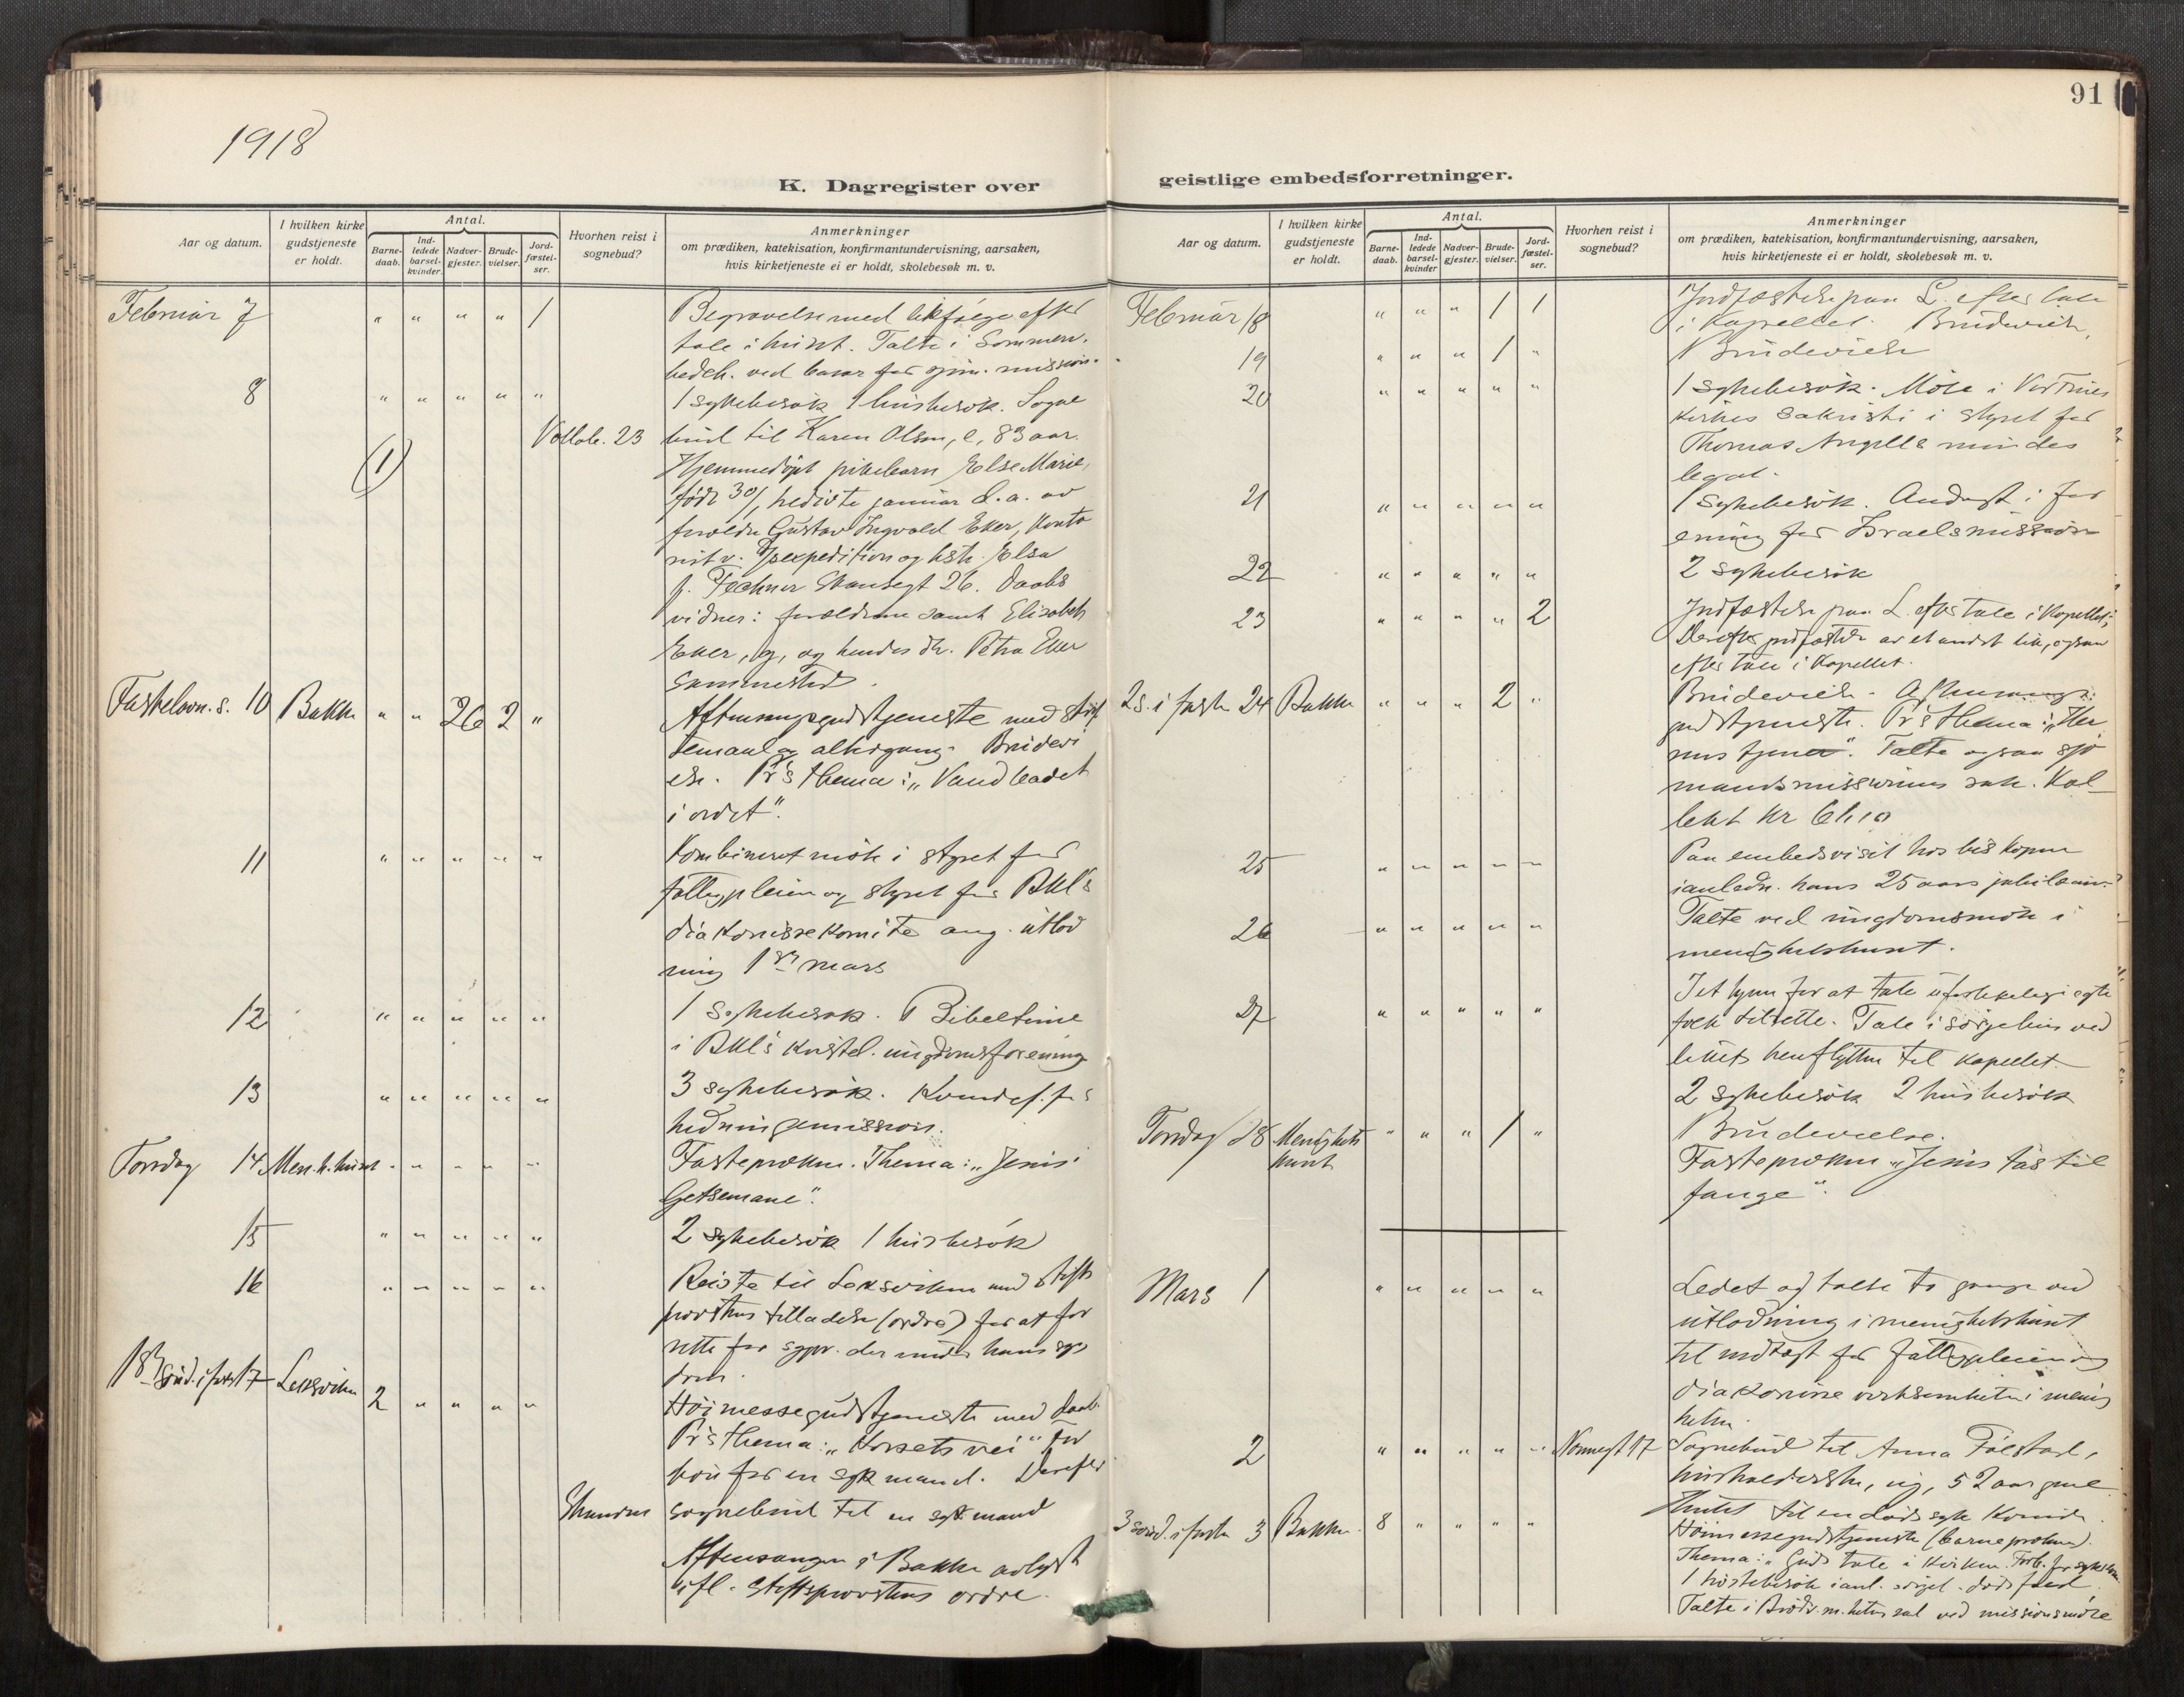 1918
K. Dagregister over
Aar og datum.
I hvilken kirke gudstjeneste er holdt.
Antal.
Barne-daab.
Ind-ledede barsel-kvinder.
Nadver-gjester.
Brude-vielser.
Jord-fæstel-ser.
Hvorhen reist i sognebud?
Anmerkninger
om prædiken, katekisation, konfirmantundervisning, aarsaken,
hvis kirketjeneste ei er holdt, skolebesøk m. v.
Februar 7 " " " " 1 Begravelse med likfølge efter
tale i huset. Talte i
ved basar for mission.
8 " " " " " 1 sykebesøk 1 husbesøk. Sogne
Vollab. 23 bud til Karen Olsen, e, 83 aar.
(1) Hjemmedøpt pikebarn Else Marie,
født 30/ januar d.a. av
forældre Gustav Ingvald Eker, konto
rist v. expedition og hstr. Elsa
f. Fechner 26. Daabs
vidner: forældrene samt Elisabeth
Eker, og hendes dtr. Petra Eker
sammested.
Fastelavn. s. 10 Bakke " " 26 2 " Aftensangsgudstjeneste med skrif
temaal og altergang. Brudevi
else. Pr's thema: "Vandbadet
i ordet".
11 " " " " " Kombineret møte i styret for
fattigpleien og styret for Bkl's
diakonissekomite ang. utlod
ning 1 mars
12 " " " " " 1 sykebesøk. Bibeltime
i Bkl's kristel. ungdomsforening
13 " " " " " 3 sykebesøk. Kvindef. for
hedningemission.
Torsdag 14 Men.h. huset " " " " " Fasteprækn. Thema: "Jesus i
Getsemane".
15 " " " " " 2 sykebesøk 1 husbesøk
16 " " " " " Reiste til Leksviken med stifts
provstens tilladelse (ordre) for at for
rette for sgpr. der under hans syg
dom.
1 sønd. i faste 17 Leksviken 2 " " " " Høimessegudstjeneste med daab.
Pr's thema: "Korsets vei" For
bøn for en syk mand. Derefter
sognebud til en syk mand
Aftensangen i Bakke avlyst
ifl. stiftsprovstens ordre.
91
geistlige embedsforretninger.
Aar og datum.
I hvilken kirke gudstjeneste er holdt.
Antal.
Barne-daab.
Ind-ledede barsel-kvinder
Nadver-gjester.
Brude-vielser.
Jord-fæstel-ser.
Hvorhen reist i sognebud?
Anmerkninger
om prædiken, katekisation, konfirmantundervisning, aarsaken,
hvis kirketjeneste ei er holdt, skolebesøk m. v.
Februar 18 " " " 1 1 Jordfæstelse paa L. efter tale
i Kapellet. Brudevielse,
19 " " " 1 " Brudevielse
20 " " " " " 1 sykebesøk. Møte i Vor Frues
kirkes sakristi i styret for
Thomas Angells mindes
legat.
21 " " " " " 1 sykebesøk. Andagt i for
ening for Israelsmission
22 " " " " " 2 sykebesøk
23 " " " " 2 Jordfæstelse paa L. efter tale i Kapellet;
Derefter jordfæstelse av et andet lik, ogsaa
efter tale i Kapellet.
2 s. i faste 24 Bakke " " " 2 " Brudevielse. Aftensangs-
gudstjeneste. Pr's thema: "Her
rens tjener". Talte ogsaa sjø
mandsmissionens sak. Kol
lekt kr
25 " " " " " Paa embedsvisit hos biskopen
i anledn. hans 25 aars jubilæum.
26 " " " " " Talte ved ungdomsmøte i
menighetshuset.
27 " " " " " for at tale uforlikelige egte
folk tilrette. Tale i sørgehus ved
likets henflytten til kapellet.
2 sykebesøk 2 husbesøk
Torsdag 28 Menighets huset " " " 1 " Brudevielse.
Fasteprækn "Jesus tas til
fange".
Mars 1 " " " " " Ledet og talte to gange ved
utlodning i menighetshuset
til indtægt for fattigpleien og
diakonisse virksomheten i menig
heten.
2 " " " " " Nonnegt 17 Sognebud til Anna Følstad,
husholderske, ug, 52 aar gml.
Hentet til en dødssyk kvinde.
3 sønd. i faste 3 Bakke. 8 " " " " Høimessegudstjeneste (barneprækn).
Thema: "Guds tale i kirken. Forb. for
1 husbesøk i anl. dødsfald.
Talte i Brødr.m.hetens sal ved missionsmøte